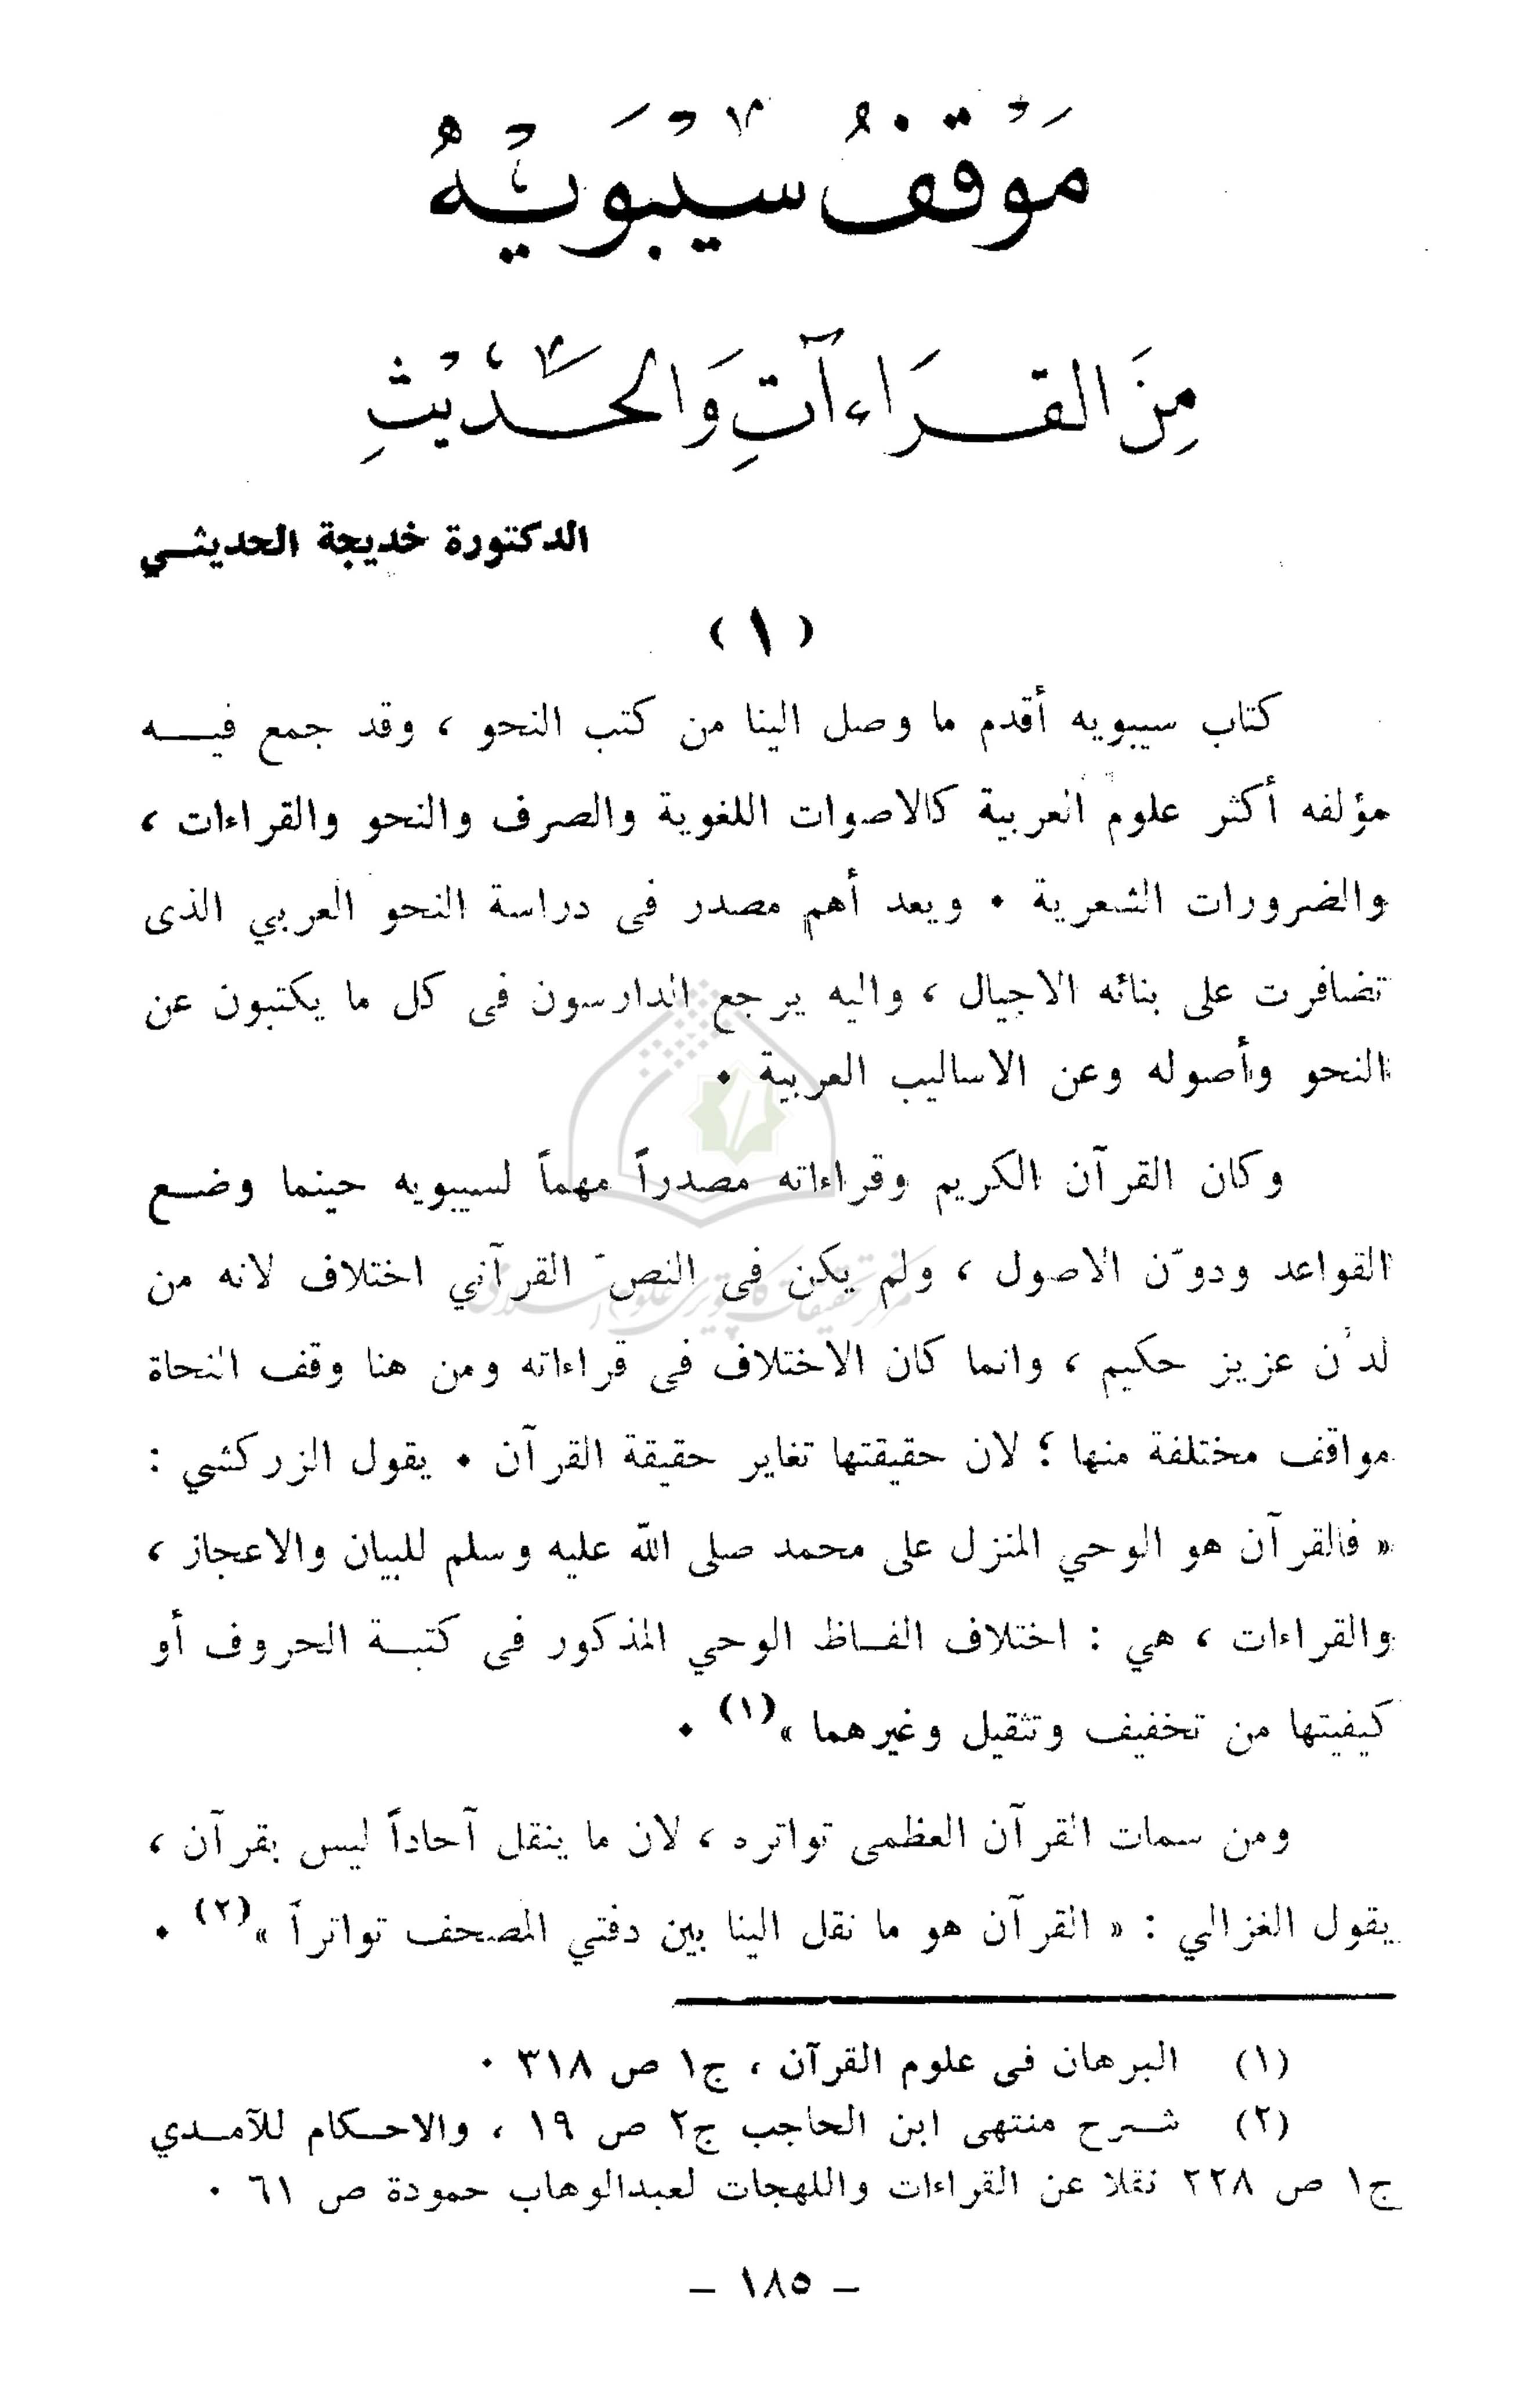 مَوْقِفُ سِيْبَوَيْهُ
مِنَ القِرَاءآتِ وَالحَدِيْثِ
الدكتورة خديجة الحديثي
(١)
كتاب سيبويه أقدم ما وصل الينا من كتب النحو ، وقد جمع فيه
مؤلفه أكثر علوم العربية كالاصوات اللغوية والصرف والنحو والقراءات ،
والضرورات الشعرية . ويعد أهم مصدر فى دراسة النحو العربي الذى
تضافرت على بنائه الاجيال ، واليه يرجع الدارسون فى كل ما يكتبون عن
النحو وأصوله وعن الاساليب العربية .
وكان القرآن الكريم وقراءاته مصدراً مهماً لسيبويه حينما وضع
القواعد ودوّن الاصول ، ولم يكن فى النصّ القرآني اختلاف لانه من
لدن عزيز حكيم ، وانما كان الاختلاف فى قراءاته ومن هنا وقف النحاة
مواقف مختلفة منها ؛ لان حقيقتها تغاير حقيقة القرآن . يقول الزركشي :
« فالقرآن هو الوحي المنزل على محمد صلى الله عليه وسلم للبيان والاعجاز ،
والقراءات ، هي : اختلاف الفاظ الوحي المذكور فى كتبة الحروف أو
كيفيتها من تخفيف وتثقيل وغيرهما »(١) .
ومن سمات القرآن العظمى تواتره ، لان ما ينقل آحاداً ليس بقرآن ،
يقول الغزالي : « القرآن هو ما نقل الينا بين دفتي المصحف تواتراً »(٢) .
(١) البرهان فى علوم القرآن ، ج١ ص ٣١٨ .
(٢) شرح منتهى ابن الحاجب ج٢ ص ١٩ ، والاحكام للآمدي
ج١ ص ٢٢٨ نقلا عن القراءات واللهجات لعبدالوهاب حمودة ص ٦١ .
- ١٨٥ -
مركز تحقيقات كامپيوترى علوم اسلامى